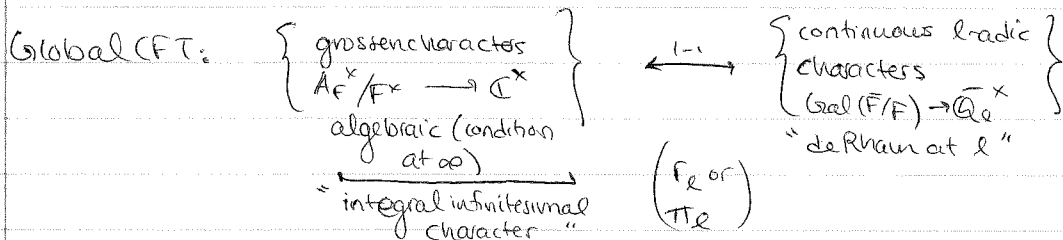 Global CFT: { grossencharacters } ⟷ 1-1 { continuous l-adic }
A_F^× / F^× → ℂ^× characters
algebraic (condition at ∞) Gal(F̄/F) → Q̄_ℓ^×
"de Rham at l"
"integral infinitesimal character" (r_ℓ or π_ℓ)